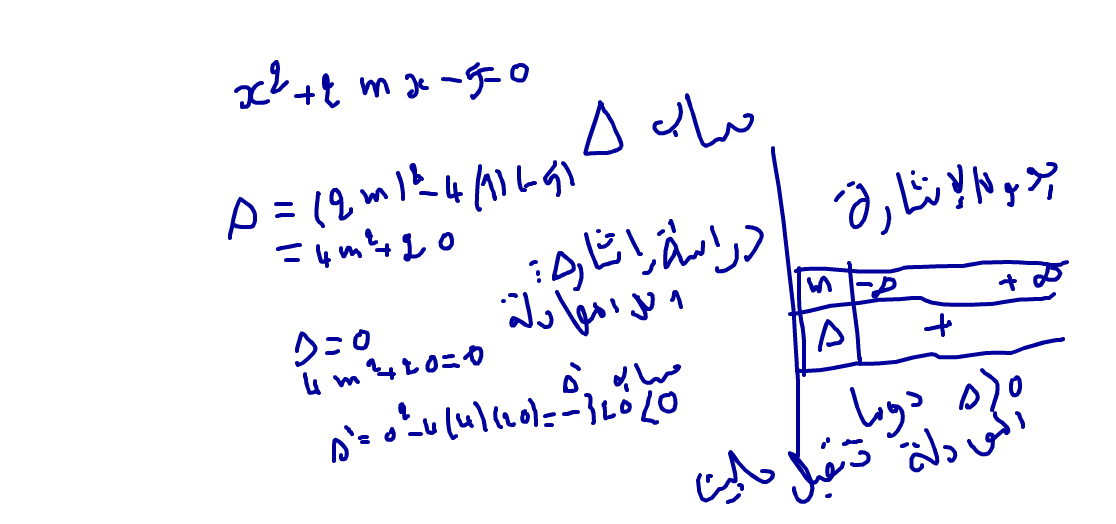 x²+2mx-5=0
حساب Δ
Δ = (2m)²-4(1)(-5)
= 4m²+20
دراسة إشارة Δ:
Δ=0
4m²+20=0
حساب Δ'
Δ'=0²-4(4)(20)=-320<0
جدول الإشارة
m -∞ +∞
Δ +
Δ>0 دوما
المعادلة تقبل حلين